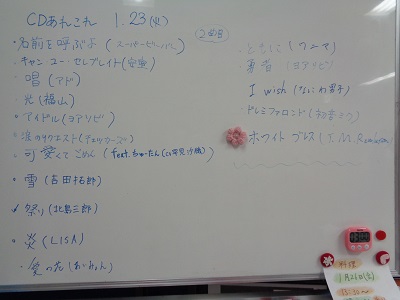 CDあれこれ 1.23(火)
2曲目
・名前を呼ぶよ(スーパービーバー)
・キャン ユー・セレブレイト(安室)
・唱(アド)
・光(福山)
・アイドル(ヨアソビ)
・涙のリクエスト(チェッカーズ)
・可愛くてごめん(feat.ちゅーたん
・雪(吉田拓郎)
祭り(北島三郎)
・炎(LISA)
・笑った(あいみょん)
・ともに(ワニマ)
・勇者(ヨアソビ)
I wish(なにわ男子)
ドレミファロンド(初音ミク)
ホワイト ブレス(T.M.
料理
1月26日(金)